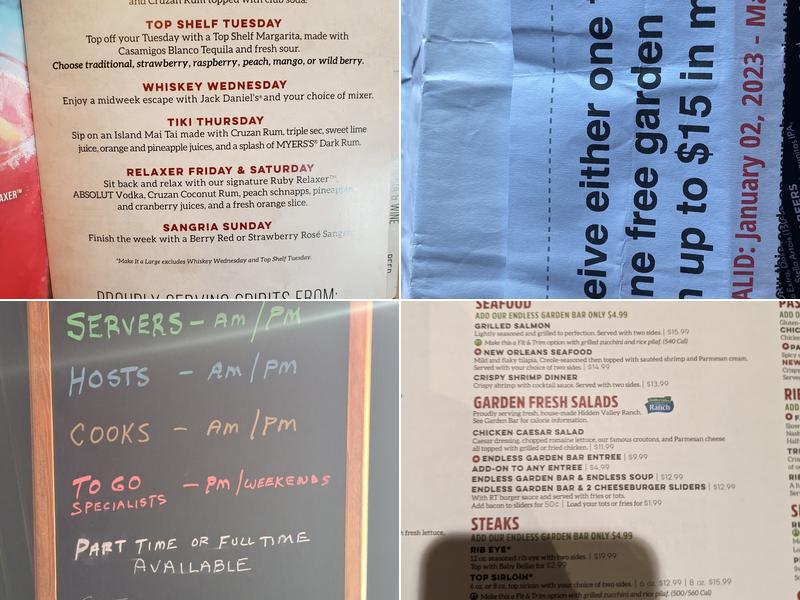 and Cruzan Rum topped with club soda.
TOP SHELF TUESDAY
Top off your Tuesday with a Top Shelf Margarita, made with
Casamigos Blanco Tequila and fresh sour.
Choose traditional, strawberry, raspberry, peach, mango, or wild berry.
WHISKEY WEDNESDAY
Enjoy a midweek escape with Jack Daniel's® and your choice of mixer.
TIKI THURSDAY
Sip on an Island Mai Tai made with Cruzan Rum, triple sec, sweet lime
juice, orange and pineapple juices, and a splash of MYERS'S® Dark Rum.
RELAXER FRIDAY & SATURDAY
Sit back and relax with our signature Ruby Relaxer™.
ABSOLUT Vodka, Cruzan Coconut Rum, peach schnapps, pineapple
and cranberry juices, and a fresh orange slice.
SANGRIA SUNDAY
Finish the week with a Berry Red or Strawberry Rosé Sangria
*Make It a Large excludes Whiskey Wednesday and Top Shelf Tuesday.
PROUDLY SERVING SPIRITS FROM:
AXER™
WINE
BEER
eive either one
ne free garden
n up to $15 in m
ALID: January 02, 2023 - Ma
SERVERS - AM/PM
HOSTS - AM/PM
COOKS - AM/PM
TO GO - PM/WEEKENDS
SPECIALISTS
PART TIME OR FULL TIME
AVAILABLE
SEAFOOD
ADD OUR ENDLESS GARDEN BAR ONLY $4.99
GRILLED SALMON
Lightly seasoned and grilled to perfection. Served with two sides. | $15.99
Make this a Fit & Trim option with grilled zucchini and rice pilaf. (540 Cal)
NEW ORLEANS SEAFOOD
Mild and flaky tilapia, Creole-seasoned then topped with sautéed shrimp and Parmesan cream.
Served with your choice of two sides. | $14.99
CRISPY SHRIMP DINNER
Crispy shrimp with cocktail sauce. Served with two sides. | $13.99
GARDEN FRESH SALADS
Proudly serving fresh, house-made Hidden Valley Ranch.
See Garden Bar for calorie information.
Ranch
CHICKEN CAESAR SALAD
Caesar dressing, chopped romaine lettuce, our famous croutons, and Parmesan cheese
all topped with grilled or fried chicken. | $11.99
ENDLESS GARDEN BAR ENTREE | $9.99
ADD-ON TO ANY ENTREE | $4.99
ENDLESS GARDEN BAR & ENDLESS SOUP | $12.99
ENDLESS GARDEN BAR & 2 CHEESEBURGER SLIDERS | $12.99
With RT burger sauce and served with fries or tots.
Add bacon to sliders for 50¢ | Load your tots or fries for $1.99
STEAKS
ADD OUR ENDLESS GARDEN BAR ONLY $4.99
RIB EYE*
12 oz. seasoned rib eye with two sides. | $19.99
Top with Baby Bellas for $2.99
TOP SIRLOIN*
6 oz. or 8 oz. top sirloin with your choice of two sides. | 6 oz. $12.99 | 8 oz. $15.99
Make this a Fit & Trim option with grilled zucchini and rice pilaf. (500/560 Cal)
h fresh lettuce,